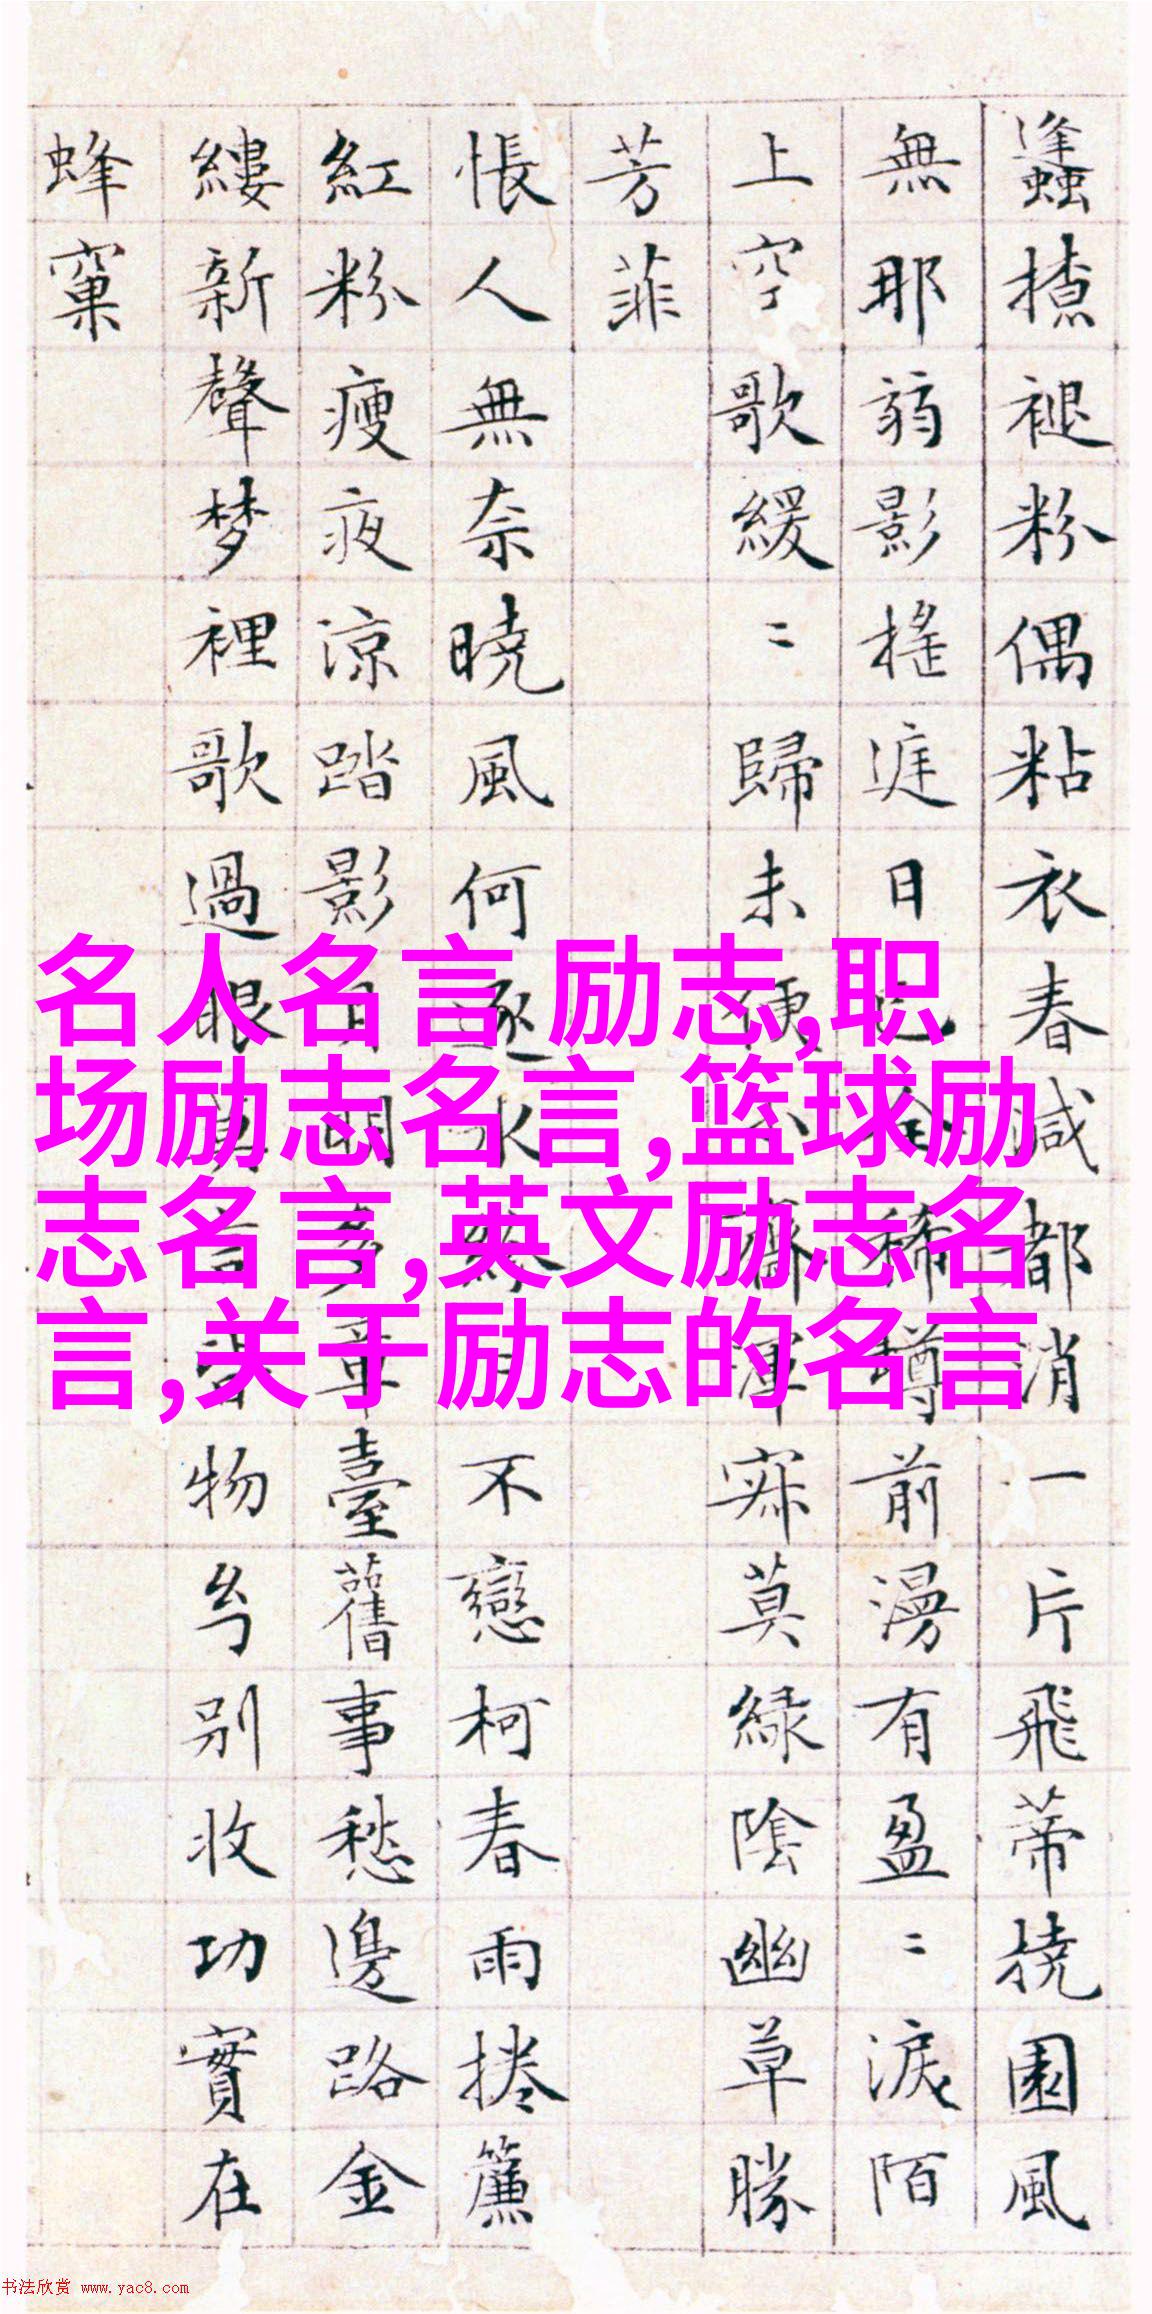 褪粉偶粘衣春减都消一片飛蒂撓園風
無那弱影搖庭日已全稀樽前漫有盈〻淚陌
上空歌緩〻歸未便不齊渾寂莫綠陰幽草勝
芳菲
悵人無奈曉風何逐水紛〻不戀柯春雨捲簾
紅粉瘦夜涼踏影月明多章臺舊事愁邊路金
縷新聲梦裡歌過眼莫言皆物别收功實在
蜂窠
名人名言 励志,职
场励志名言,篮球励
志名言,英文励志名
言,关于励志的名言
书法欣赏 www.yac8.com